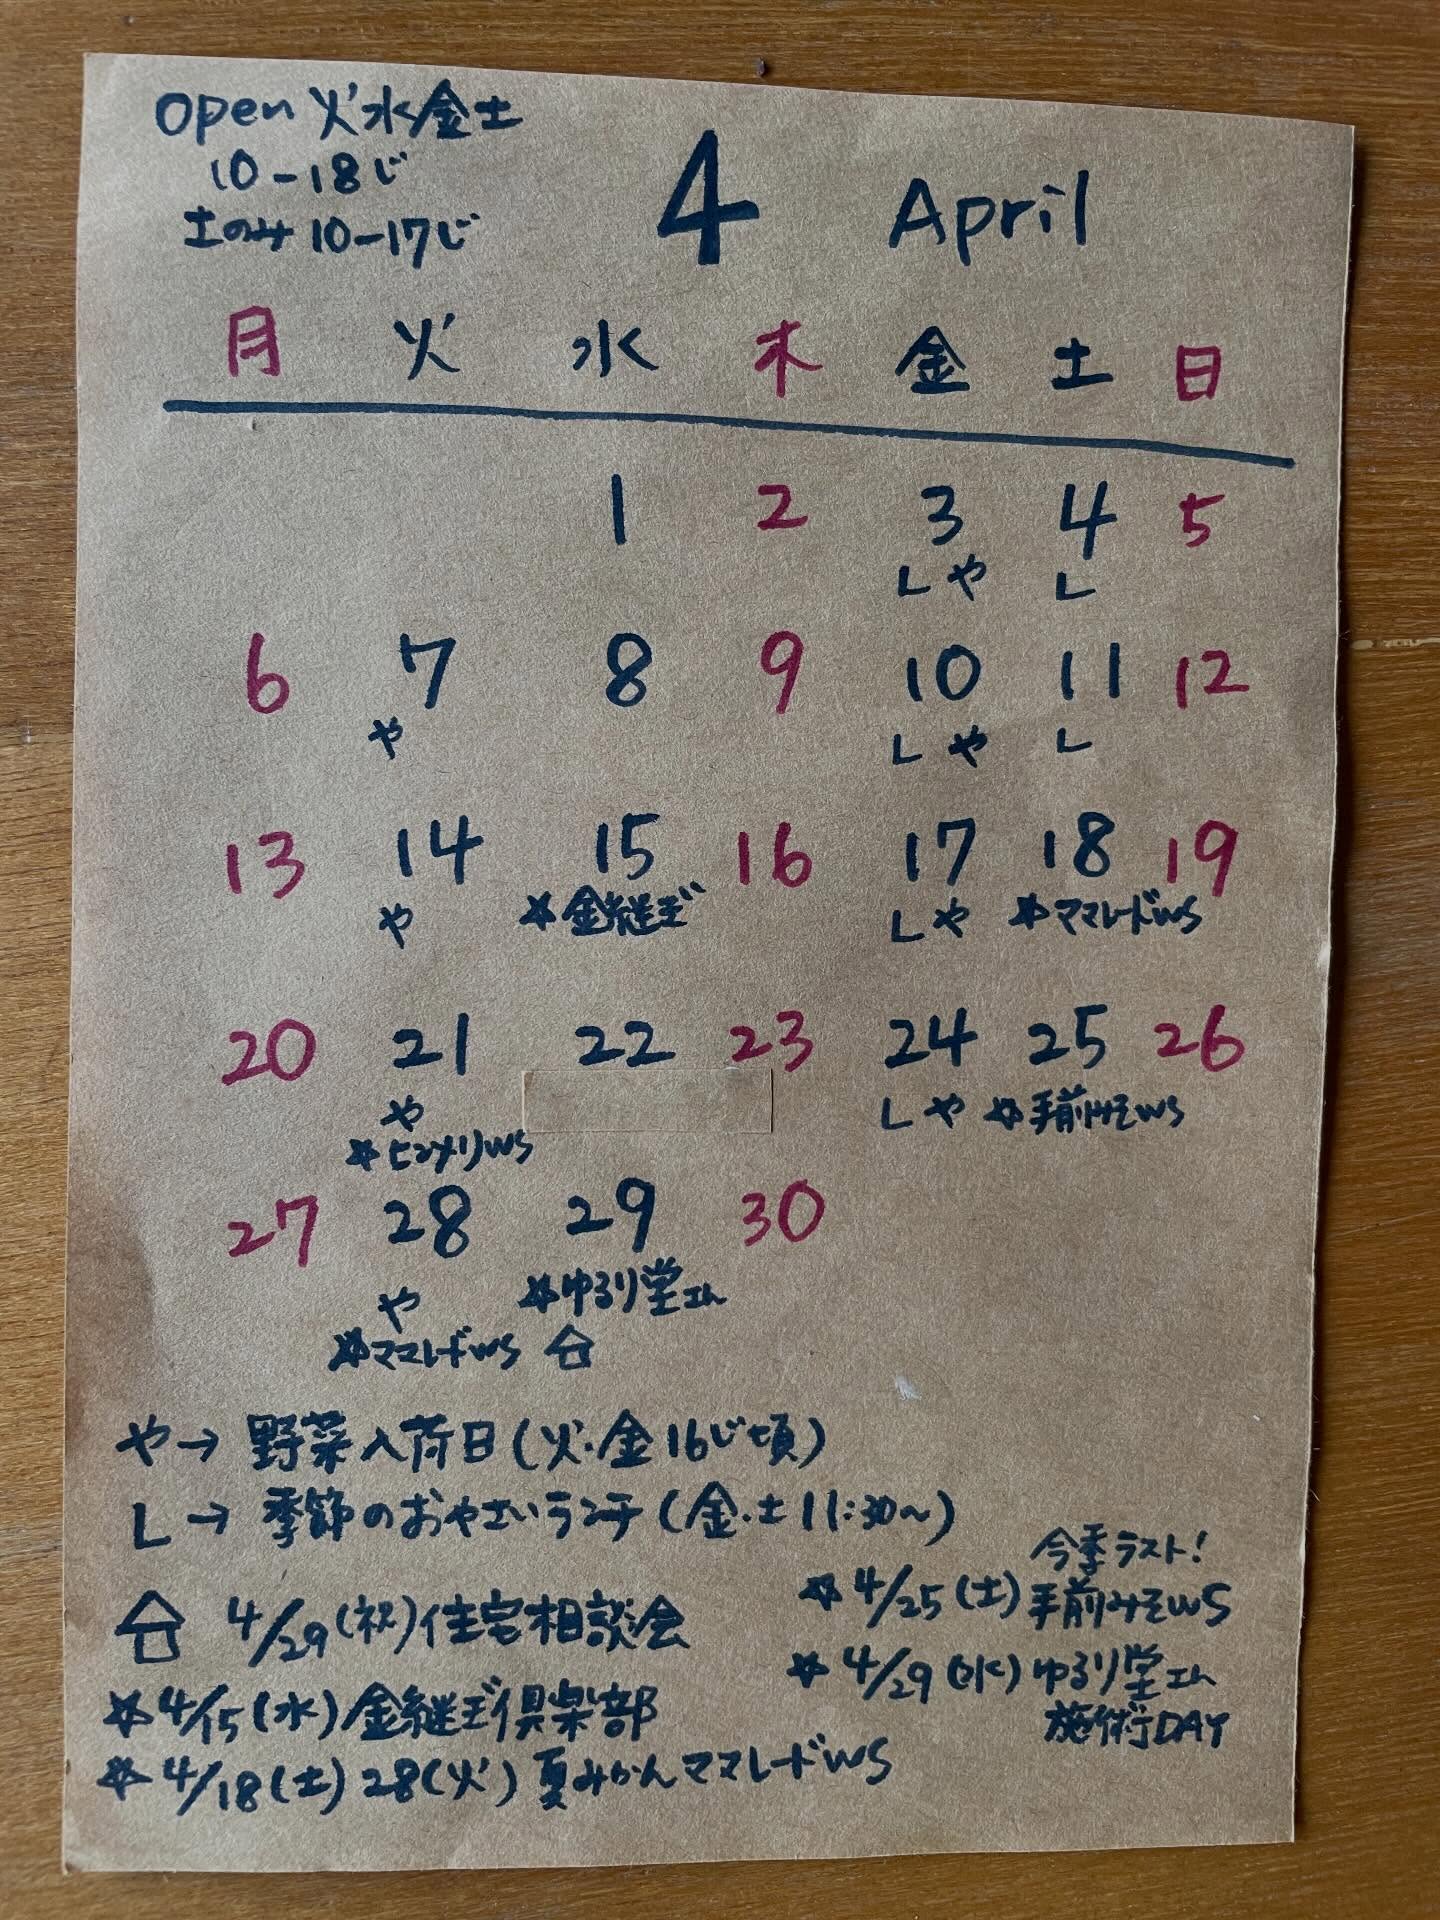 Open 火水金土
10-18じ
土のみ 10-17じ
4 April
月 火 水 木 金 土 日
1 2 3 4 5
Lや L
6 7 8 9 10 11 12
や Lや L
13 14 15 16 17 18 19
や ☆金継ぎ Lや ☆ママレードWS
20 21 22 23 24 25 26
や Lや ☆手前みそWS
☆ヒンメリWS
27 28 29 30
や ☆ゆるり堂さん
☆ママレードWS
や→野菜入荷日(火・金16じ頃)
L→季節のおやさいランチ(金・土11:30〜)
4/29(祝)住宅相談会
☆4/15(水)金継ぎ倶楽部
☆4/18(土)28(火)夏みかんママレードWS
今季ラスト!
☆4/25(土)手前みそWS
☆4/29(水)ゆるり堂さん
施術DAY